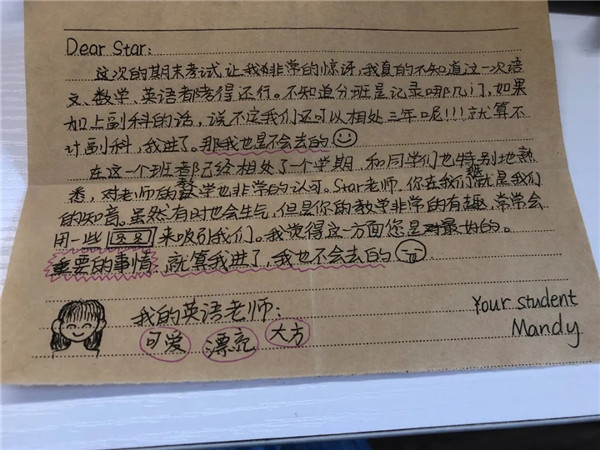 Dear Star:
这次的期末考试让我非常的惊讶,我真的不知道这一次语
文、数学、英语都考得还行。不知道分班是记录哪几门,如果
加上副科的话,说不定我们还可以相处三年呢!!!就算不
计副科,我进了。那我也是不会去的
在这一个班都已经相处了一个学期,和同学们也特别地熟
悉,对老师的教学也非常的认可。Star老师,你在我们班就是我们
的知音。虽然有时也会生气,但是你的教学非常的有趣,常常会
用一些来吸引我们。我觉得这一方面您是最好的。
重要的事情:就算我进了,我也不会去的
我的英语老师:
可爱 漂亮 大方
Your student
Mandy